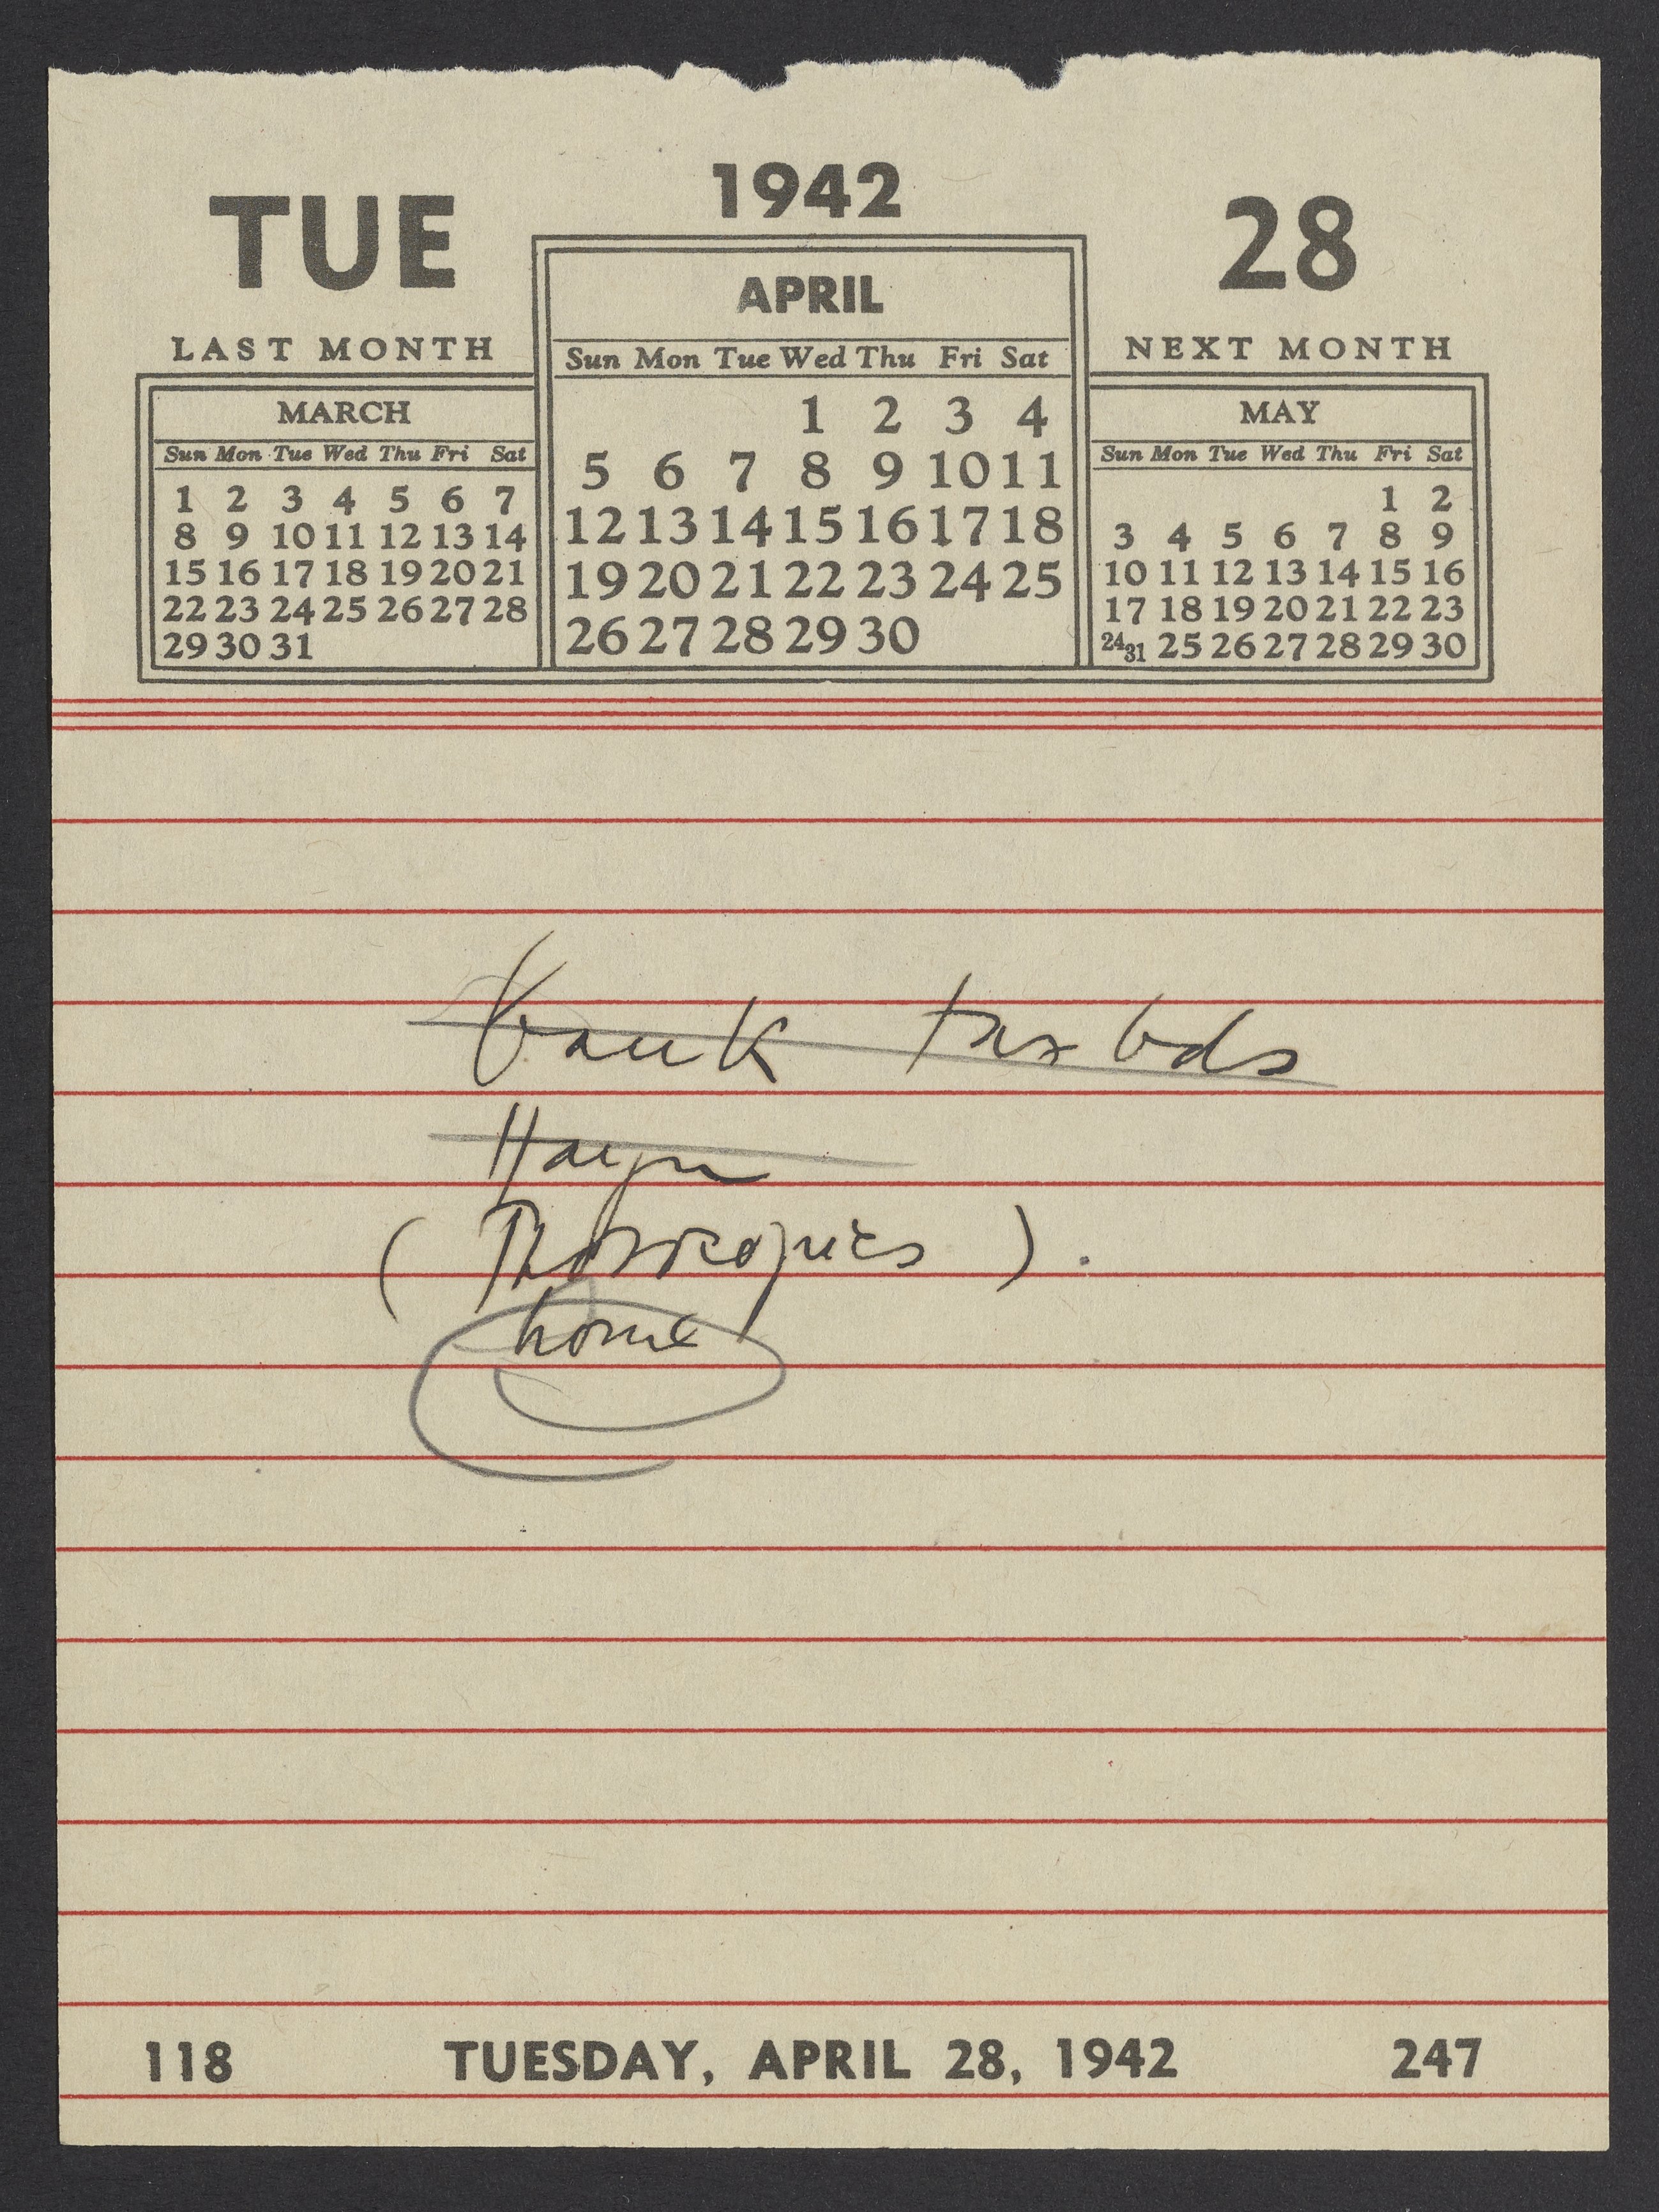 1942
TUE 28
APRIL
LAST MONTH NEXT MONTH
Sun Mon Tue Wed Thu Fri Sat
1 2 3 4
5 6 7 8 9 10 11
12 13 14 15 16 17 18
19 20 21 22 23 24 25
26 27 28 29 30
MARCH
Sun Mon Tue Wed Thu Fri Sat
1 2 3 4 5 6 7
8 9 10 11 12 13 14
15 16 17 18 19 20 21
22 23 24 25 26 27 28
29 30 31
MAY
Sun Mon Tue Wed Thu Fri Sat
1 2
3 4 5 6 7 8 9
10 11 12 13 14 15 16
17 18 19 20 21 22 23
24 31 25 26 27 28 29 30
bank tax bds
home
118 TUESDAY, APRIL 28, 1942 247